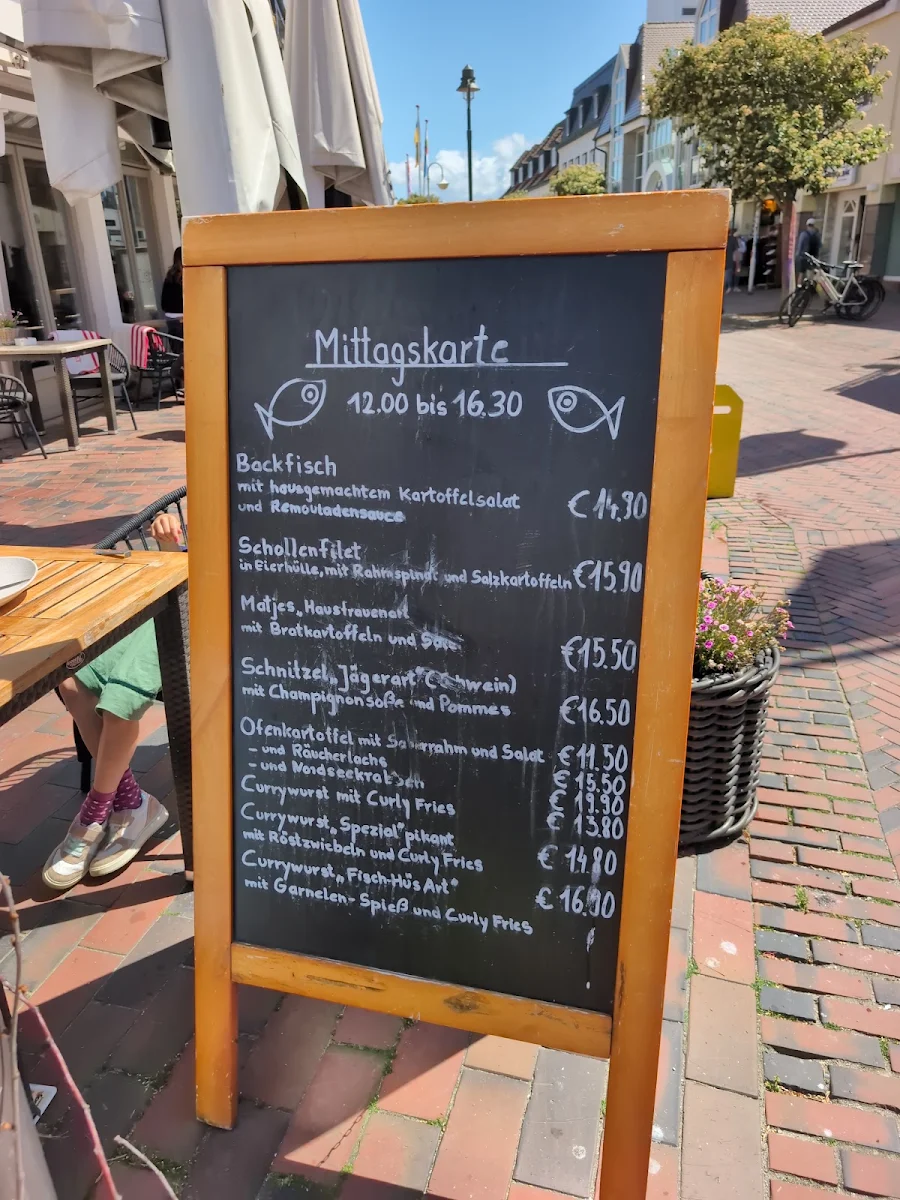 Mittagskarte
12.00 bis 16.30
Backfisch
mit hausgemachtem Kartoffelsalat
und Remouladensauce €14.90
Schollenfilet
in Eierhülle, mit Rahmspinat und Salzkartoffeln €15.90
Matjes „Hausfrauenart
mit Bratkartoffeln und €15.50
Schnitzel „Jägerart" (Schwein)
mit Champignonsoße und Pommes €16.50
Ofenkartoffel mit Sauerrahm und Salat €11.50
- und Räucherlachs €15.50
- und Nordseekrabben €19.90
Currywurst mit Curly Fries €13.80
Currywurst „Spezial" pikant
mit Röstzwiebeln und Curly Fries €14.80
Currywurst „Fisch-Hüs Art"
mit Garnelen-Spieß und Curly Fries €16.90